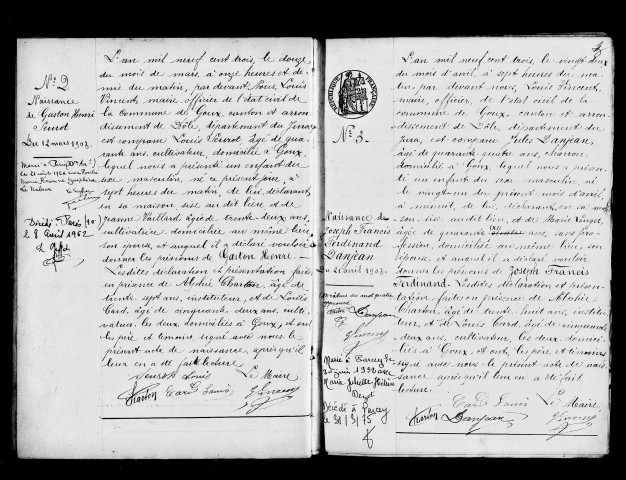 N° 2
Naissance
de Gaston Henri
Du 12 mars 1903
L'an mil neuf cent trois, le douze
du mois de mars, à onze heures et de-
mie du matin, par devant Nous, Louis
Vincent, maire, officier de l'état civil de
la Commune de Goux, canton et arron-
dissement de Dôle, département du Jura
est comparu Louis âgé de qua-
rante ans, cultivateur, domicilié à Goux,
lequel nous a présenté un enfant du
sexe masculin, né ce présent jour, à
sept heures du matin, de lui, déclarant,
en sa maison sise au dit lieu, et de
Jeanne Vuillard, âgée de trente-deux ans,
cultivatrice, domiciliée au même lieu,
son épouse, et auquel il a déclaré vouloir
donner les prénoms de Gaston Henri.
Lesdites déclaration et présentation faites
en présence de Alphie Charton, âgé de
trente sept ans, instituteur, et de Louis
Card, âgé de cinquante-deux ans, culti-
vateur, les deux domiciliés à Goux, et ont
les père et témoins, signé avec nous le
présent acte de naissance, après qu'il
leur en a été fait lecture.
Le Maire
Charton Card Louis
Décédé à Paris
le 8 avril 1962
N° 3.
Naissance de
Joseph Francis
Ferdinand
Danjean
Du 21 avril 1903.
Marié à Parcey le
juin 1932 avec
Marie Juliette
Décédé à Parcey
le 31/3/75
L'an mil neuf cent trois, le vingt-deux
du mois d'avril, à sept heures du ma-
tin, par devant nous, Louis Vincent,
maire, officier, de l'état civil de la
commune de Goux, canton et arron-
dissement de Dôle, département du
Jura, est comparu Jules Danjean,
âgé de quarante ans, charron,
domicilié à Goux, lequel nous a présen-
té un enfant du sexe masculin, né
le vingt-un du présent mois d'avril,
à minuit, de lui, déclarant, en sa mai-
son sise au dit lieu, et de Marie
âgée de quarante ans, sans pro-
fession, domiciliée au même lieu, son
épouse, et auquel il a déclaré vouloir
donner les prénoms de Joseph Francis
Ferdinand. Lesdites déclaration et présen-
tation faites en présence de Alphie
Charton, âgé de trente huit ans, institu-
teur, et de Louis Card, âgé de cinquante
deux ans, cultivateur, les deux domici-
liés à Goux, et ont, les père et témoins
signé avec nous le présent acte de nais-
sance après qu'il leur en a été fait
lecture.
Card Louis Le Maire
Charton Danjean